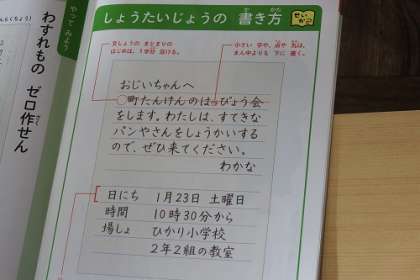 しょうたいじょうの 書き方
かた
せいかつ
文しょうの まとまりの
はじめは、1字分 空ける。
小さい 字や、点や 丸は、
まん中よりも 下に 書く。
おじいちゃんへ
町たんけんのはっぴょう会
をします。わたしは、すてきな
パンやさんをしょうかいする
ので、ぜひ来てください。
わかな
日にち 1月23日 土曜日
時間 10時30分から
場しょ ひかり小学校
2年2組の教室
やって みよう
わすれもの ゼロ作せん